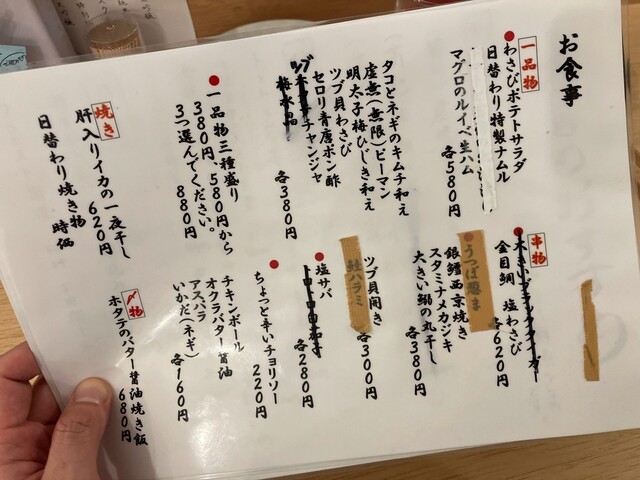 お食事
一品物
わさびポテトサラダ
日替わり特製ナムル
マグロのルイベ生ハム
各580円
タコとネギのキムチ和え
虚無(無限)ピーマン
明太子梅ひじき和え
ツブ貝わさび
セロリ青唐ポン酢
ツブチャンジャ
梅水晶
各380円
一品物三種盛り
380円、580円から
3つ選んでください。
880円
焼き
肝入りイカの一夜干し
620円
日替わり焼き物
時価
串物
金目鯛 塩わさび
各620円
うつぼ
銀鱈西京焼き
スタミナメカジキ
大きい鰯の丸干し
各380円
ツブ貝開き
鮭ハラミ
各300円
塩サバ
各280円
ちょっと辛いチョリソー
220円
チキンボール
オクラバター醤油
アスパラ
いかだ(ネギ)
各160円
〆物
ホタテのバター醤油焼き飯
680円